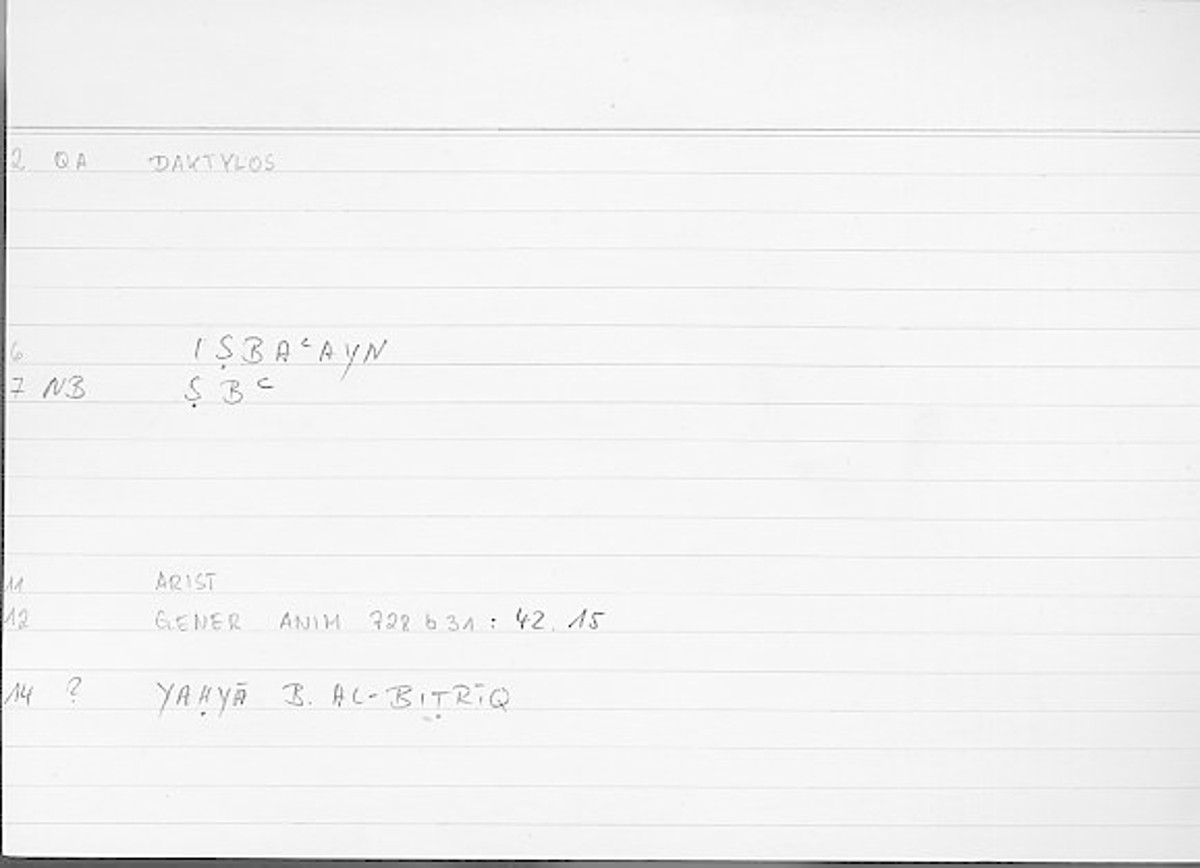 2 QA DAKTYLOS
6 IṢBAᶜAYN
7 NB ṢBᶜ
11 ARIST
12 GENER ANIM 728 b 31 : 42.15
14 ? YAḤYĀ B. AL-BIṬRĪQ